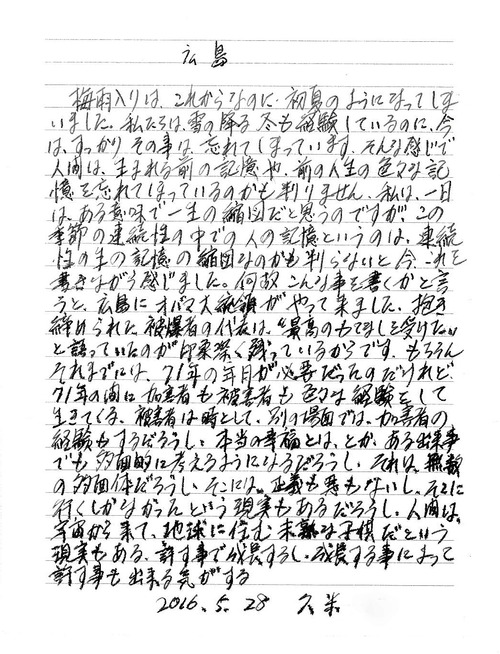 広島
梅雨入りは、これからなのに、初夏のようになってしま
いました。私たちは、雪の降る冬も経験しているのに、今
は、すっかりその事は、忘れてしまっています。そんな感じで
人間は、生まれる前の記憶や、前の人生の色々な記
憶を忘れてしまっているのかも判りません。私は、一日
は、ある意味で一生の縮図だと思うのですが、この
季節の連続性の中での人の記憶というのは、連続
性の生の記憶の縮図なのかも判らないと今、これを
書きながら感じました。何故こんな事を書くかと言
うと、広島にオバマ大統領がやって来ました。抱き
締められた被爆者の代表は、"最高のもてなしを受けたい
と語っていたのが印象深く残っているからです。もちろん
それまでには、71年の年月が必要だったのだけれど、
71年の間に加害者も被害者も色々な経験をして
生きてくる。被害者は時として、別の場面では、加害者の
経験もするだろうし、本当の幸福とは、とか、ある出来事
でも多面的に考えるようになるだろうし、それは、無数
の多面体だろうし、そこには、正義も悪もないし、そこに
行くしかなかったという現実もあるだろうし、人間は、
宇宙から来て、地球に住む未熟な子供だという
現実もある、許す事で成長するし、成長する事によって
許す事も出来る気がする
2016.5.28 久米